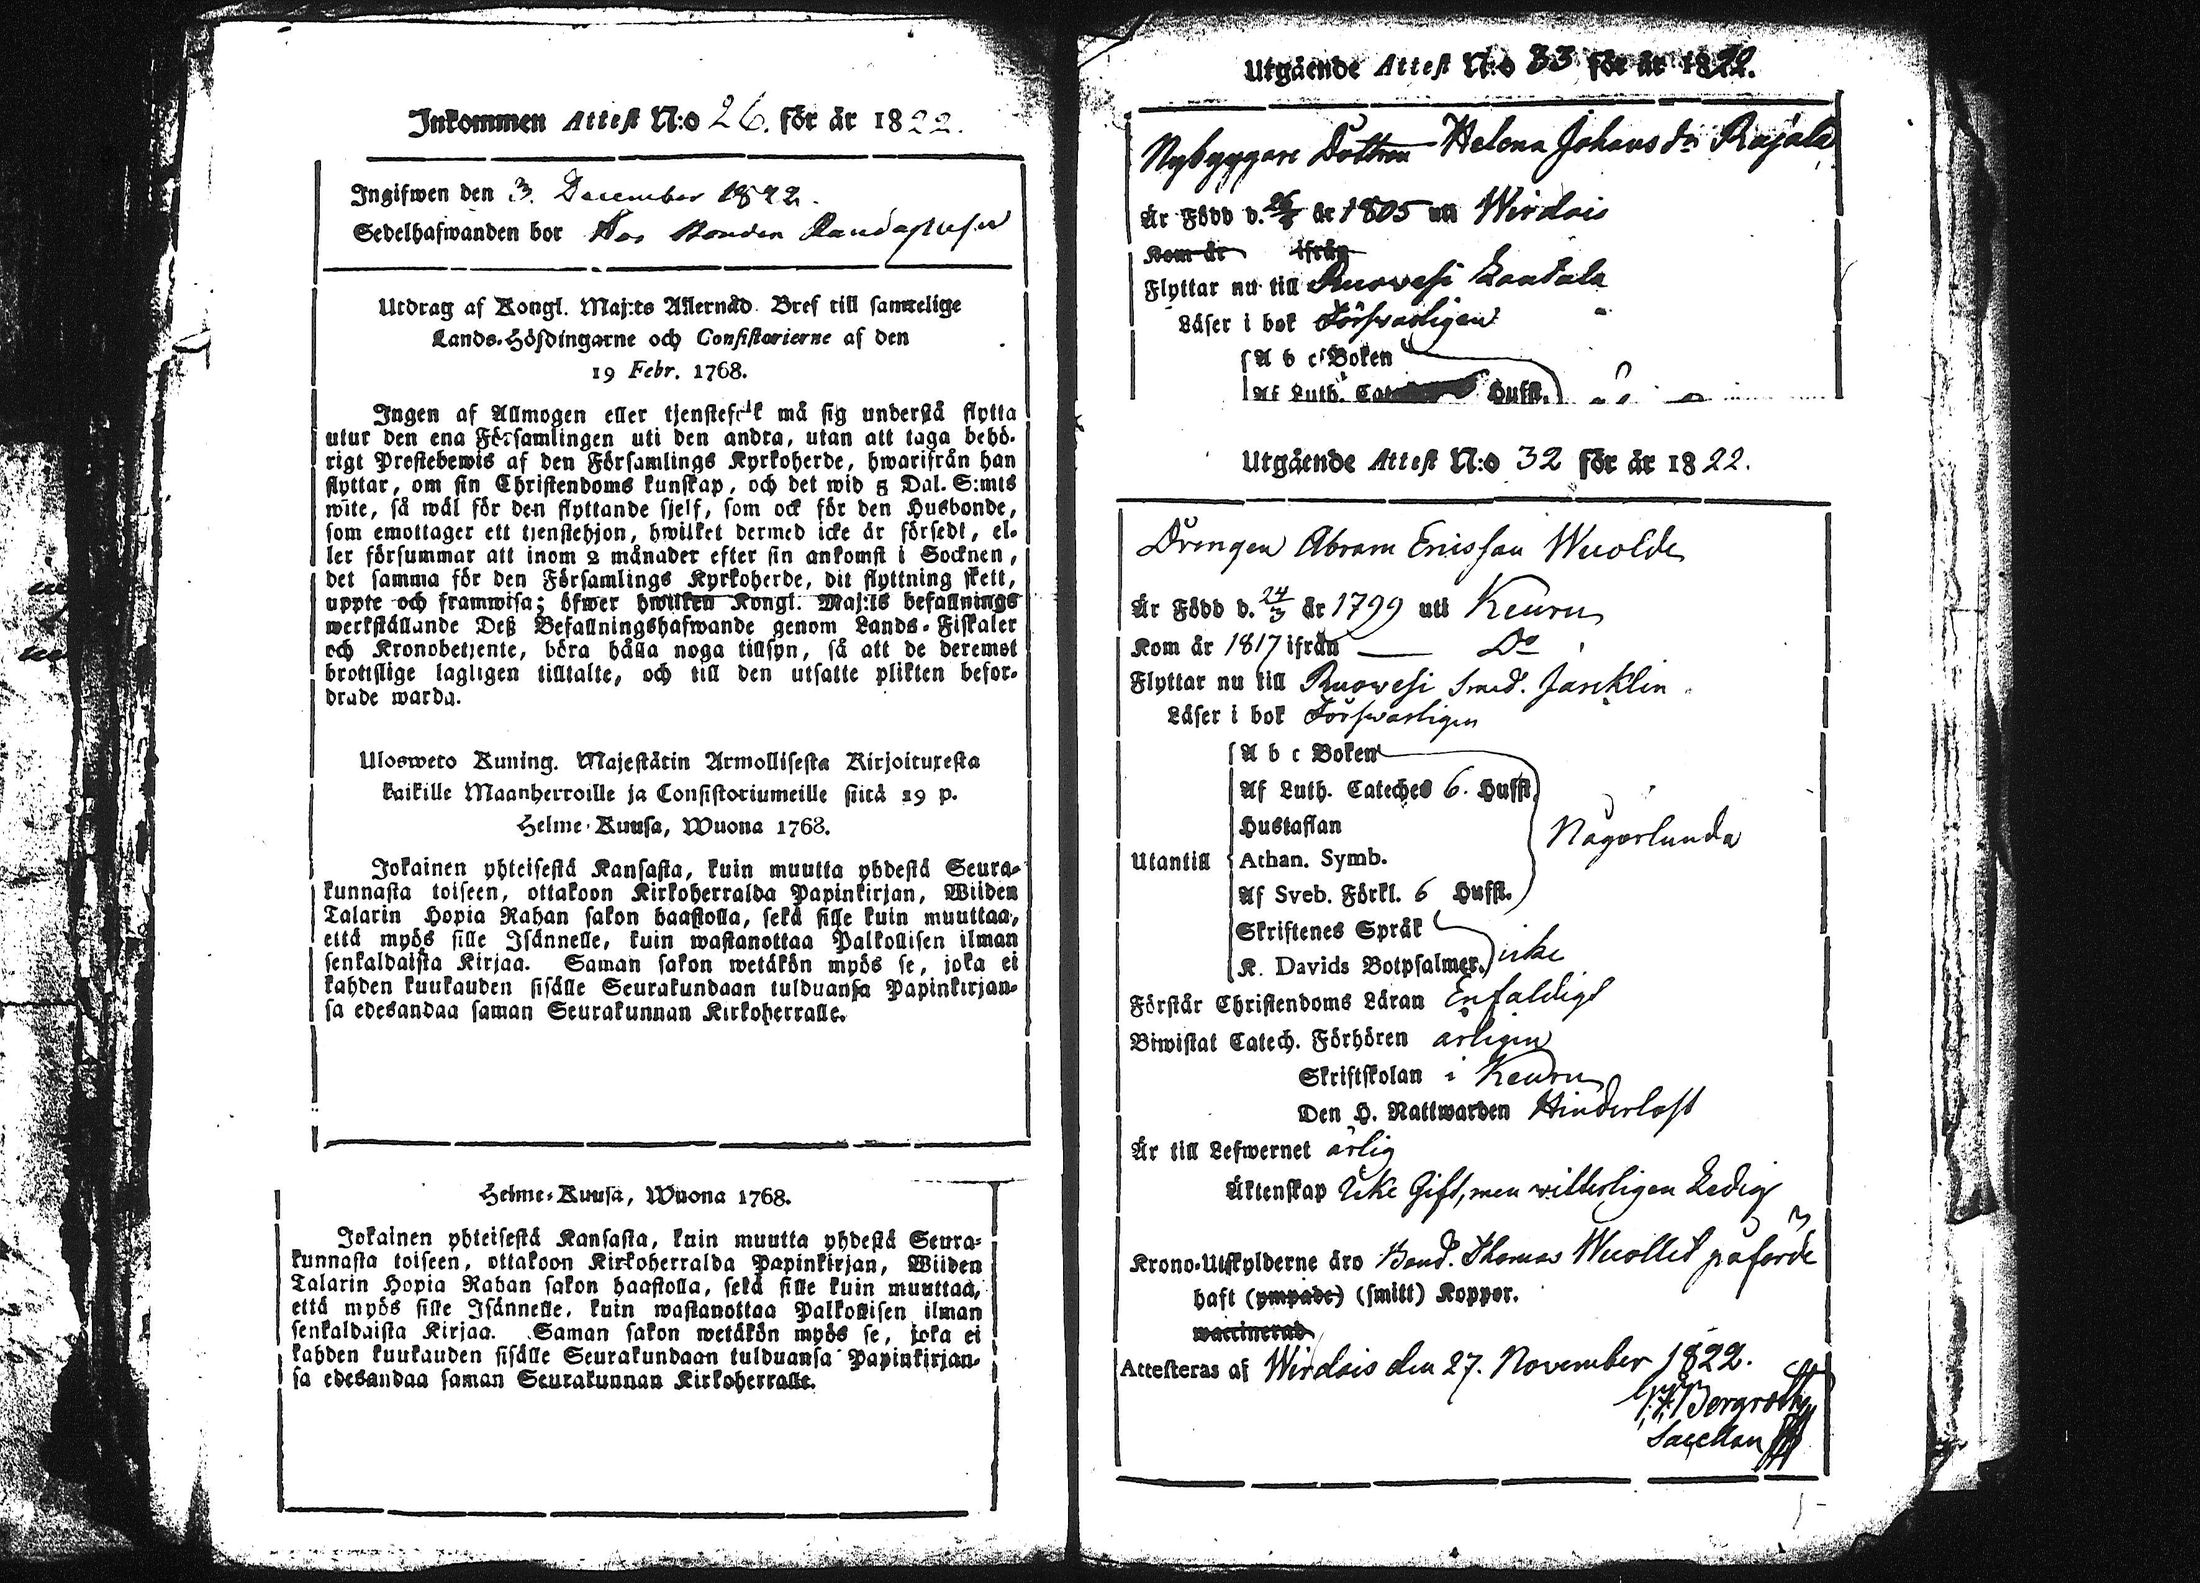 Inkommen Attest N:o 26. för år 1822.
Ingifwen den 3. December 1822.
Sedelhafwanden bor Hos Bonden
Utdrag af Kongl. Maj:ts Allernåd. Bref till samtelige
Lands-Höfdingarne och Consistorierne af den
19 Febr. 1768.
Ingen af Allmogen eller tjenstefolk må sig understå flytta
utur den ena Församlingen uti den andra, utan att taga behö-
rigt Prestebewis af den Församlings Kyrkoherde, hwarifrån han
flyttar, om sin Christendoms kunskap, och det wid 5 Dal. S:mts
wite, så wäl för den flyttande sjelf, som ock för den Husbonde,
som emottager ett tjenstehjon, hwilket dermed icke är försedt, el-
ler försummar att inom 2 månader efter sin ankomst i Socknen,
det samma för den Församlings Kyrkoherde, dit flyttning skett,
uppte och framwisa; öfwer hwilken Kongl. Maj:ts befallnings
werkställande Deß Befallningshafwande genom Lands-Fiskaler
och Kronobetjente, böra hålla noga tillsyn, så att de deremot
brottslige lagligen tilltalte, och till den utsatte plikten befor-
drade warda.
Ulosweto Kuning. Majestätin Armollisesta Kirjoituxesta
kaikille Maanherroille ja Consistoriumeille siitä 19 p.
Helme-Kuusa, Wuona 1768.
Jokainen yhteisestä Kansasta, kuin muutta yhdestä Seura-
kunnasta toiseen, ottakoon Kirkoherralda Papinkirjan, Wiiden
Talarin Hopia Rahan sakon haastolla, sekä sille kuin muuttaa,
että myös sille Isännelle, kuin wastanottaa Palkollisen ilman
senkaldaista Kirjaa. Saman sakon wetäkön myös se, joka ei
kahden kuukauden sisälle Seurakundaan tulduansa Papinkirjan-
sa edesandaa saman Seurakunnan Kirkoherralle.
Helme-Kuusa, Wuona 1768.
Jokainen yhteisestä Kansasta, kuin muutta yhdestä Seura-
kunnasta toiseen, ottakoon Kirkoherralda Papinkirjan, Wiiden
Talarin Hopia Rahan sakon haastolla, sekä sille kuin muuttaa,
että myös sille Isännelle, kuin wastanottaa Palkollisen ilman
senkaldaista Kirjaa. Saman sakon wetäkön myös se, joka ei
kahden kuukauden sisälle Seurakundaan tulduansa Papinkirjan-
sa edesandaa saman Seurakunnan Kirkoherralle.
Utgående Attest N:o 33 för år 1822.
Nybyggare Dottren Helena Johans dr Rajala
Är Född d. år 1805 uti Wirdois
Kom år ifrån
Flyttar nu till Ruowesi
Läser i bok Försvarligen
A b c Boken
Af Luth. Hufst.
Utgående Attest N:o 32 för år 1822.
Drengen Abram Ericsson Wuolde
Är Född d. 24/3 år 1799 uti Keuru
Kom år 1817 ifrån — Do
Flyttar nu till Ruowesi Smed. Jarcklin
Läser i bok Försvarligen
A b c Boken
Af Luth. Cateches 6. Hufst.
Hustaflan
Någorlunda
Utantill Athan. Symb.
Af Sveb. Förkl. 6 Hufst.
Skriftenes Språk
K. Davids Botpsalmer. icke
Förstår Christendoms Läran Enfaldigt
Biwistat Catech. Förhören årligen
Skriftskolan i Keuru
Den H. Nattwarden Hinderlöst
Är till Lefwernet ärlig
Äktenskap Icke Gift, men witterligen Ledig
Krono-Utskylderne äro Bond. Thomas Wuollet påförde
haft (ympade) (smitt) Koppor.
waccinerad
Attesteras af Wirdois den 27. November 1822.
Bergroth
Sacellan